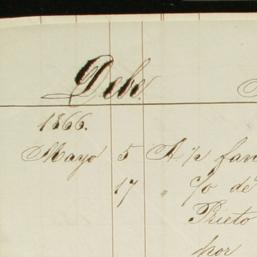 Debe
1866.
Mayo 5 A n/p fav
17 " c/o de
Prieto
por